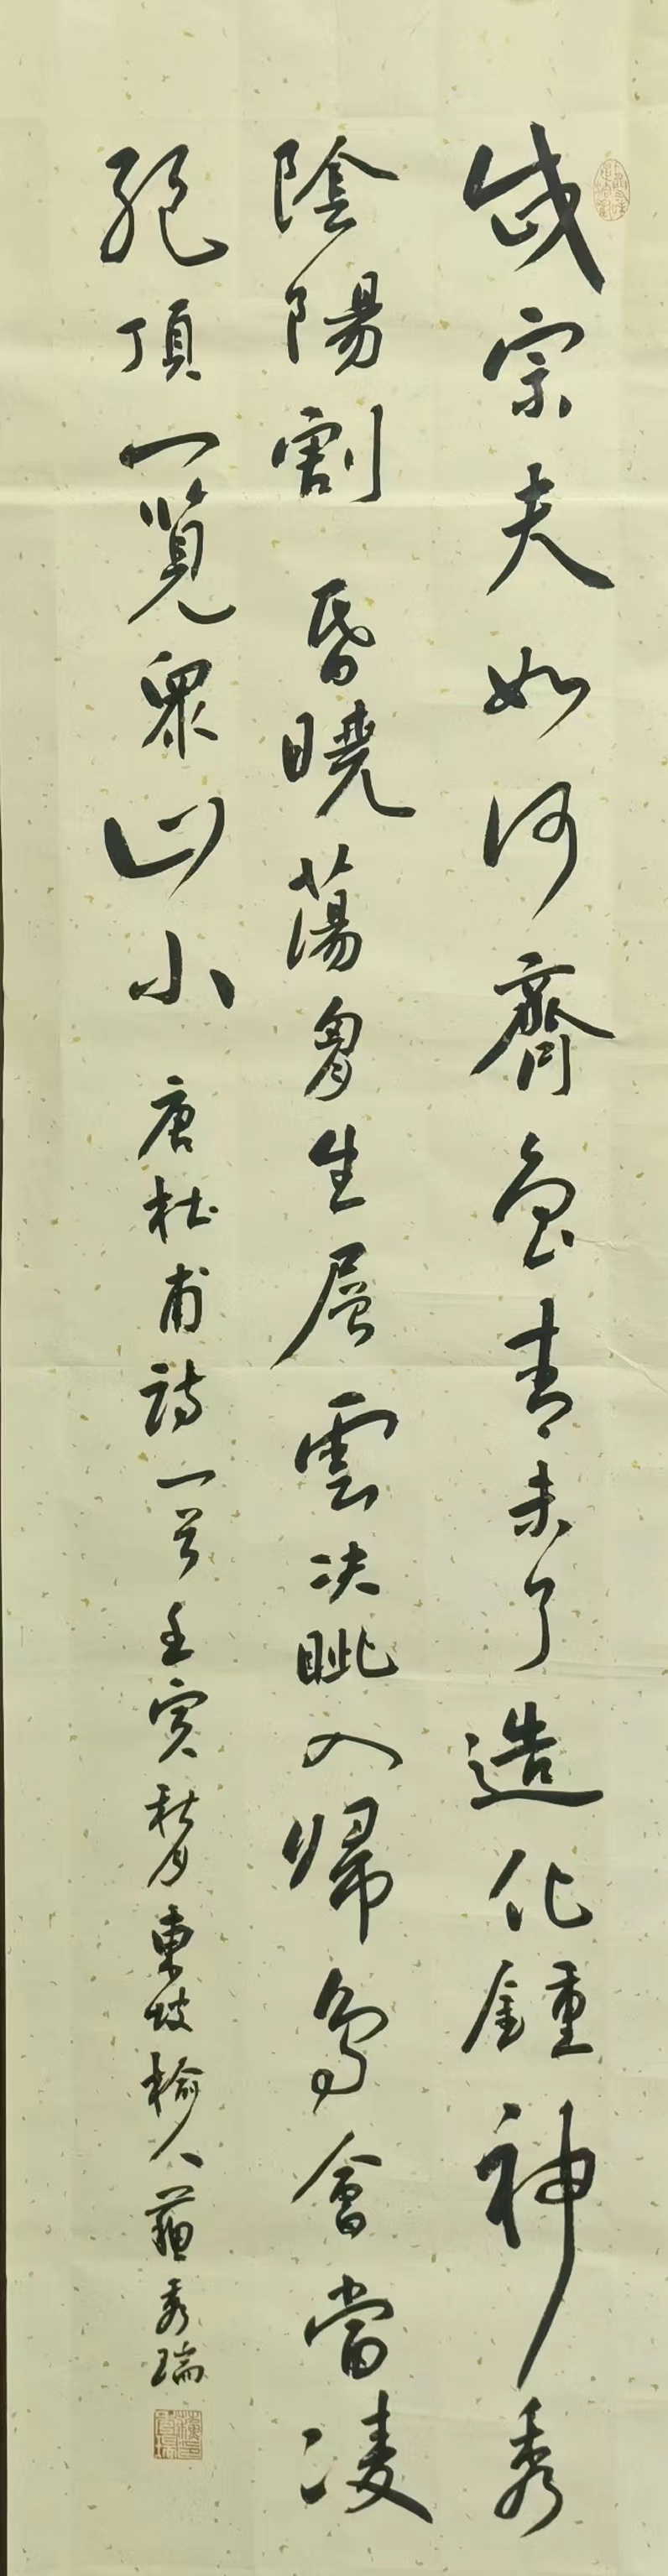 岱宗夫如何齊魯青未了造化鍾神秀
陰陽割昏曉蕩胷生層雲决眦入歸鳥會當凌
絕頂一覽眾山小 唐杜甫詩一首壬寅秋月東坡榆人蘇秀瑞